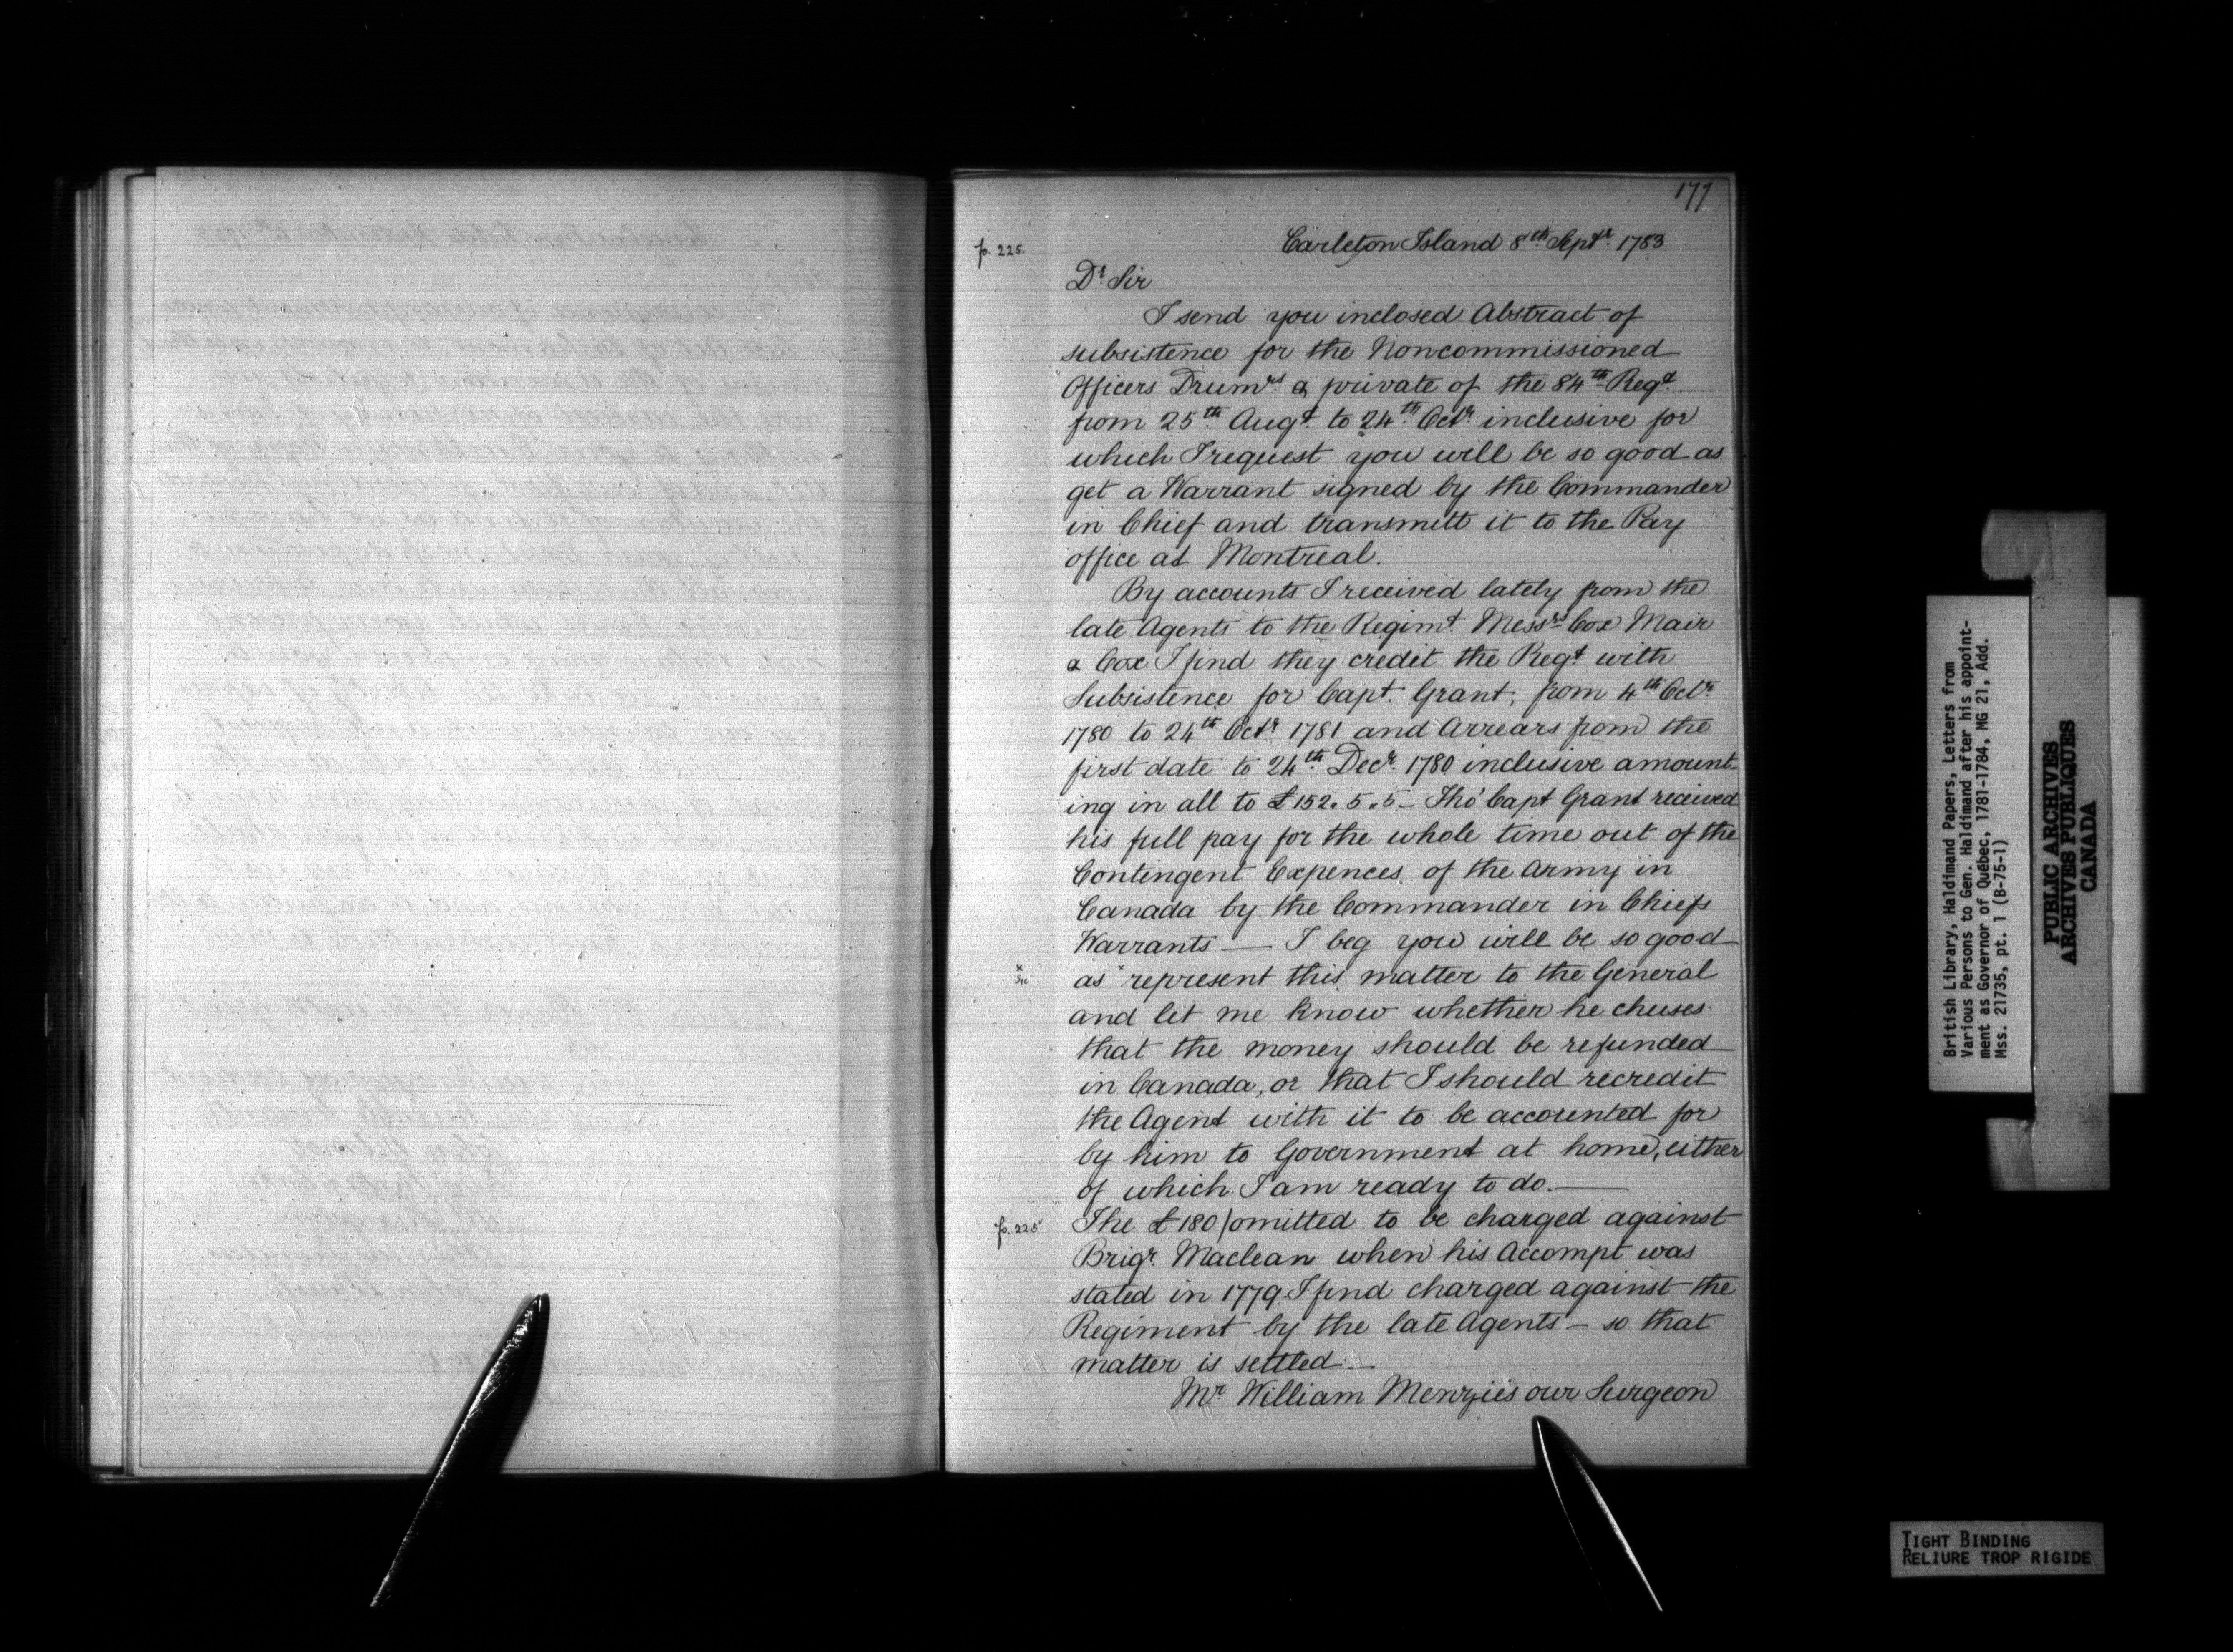 177
p. 225.
Carleton Island 8th Septr. 1783
Dr. Sir
I send you inclosed Abstract of
subsistence for the Noncommissioned
Officers Drumrs. & private of the 84th Regt.
from 25th Augt. to 24th. Octr. inclusive for
which I request you will be so good as
get a Warrant signed by the Commander
in Chief and transmitt it to the Pay
office at Montreal.
By accounts I received lately from the
late Agents to the Regimt. Messrs Cox Mair
& Cox I find they credit the Regt with
Subsistence for Capt. Grant, from 4th Octr.
1780 to 24th Octr 1781 and Arrears from the
first date to 24th. Decr. 1780 inclusive amount-
ing in all to £152. 5. 5 – Tho' Capt Grant received
his full pay for the whole time out of the
Contingent Expences of the Army in
Canada by the Commander in Chiefs
Warrants — I beg you will be so good
x
Sic
as x represent this matter to the General
and let me know whether he chuses
that the money should be refunded
in Canada, or that I should recredit
the Agent with it to be accounted for
by him to Government at home, either
of which I am ready to do. —
p. 225
The £180/ omitted to be charged against
Brigr. Maclean when his Accompt was
stated in 1779 I find charged against the
Regiment by the late Agents – so that
matter is settled. –
Mr. William Menziis our Surgeon
British Library, Haldimand Papers, Letters from
Various Persons to Gen. Haldimand after his appoint-
ment as Governor of Québec, 1781-1784, MG 21, Add.
Mss. 21735, pt. 1 (B-75-1)
PUBLIC ARCHIVES
ARCHIVES PUBLIQUES
CANADA
TIGHT BINDING
RELIURE TROP RIGIDE